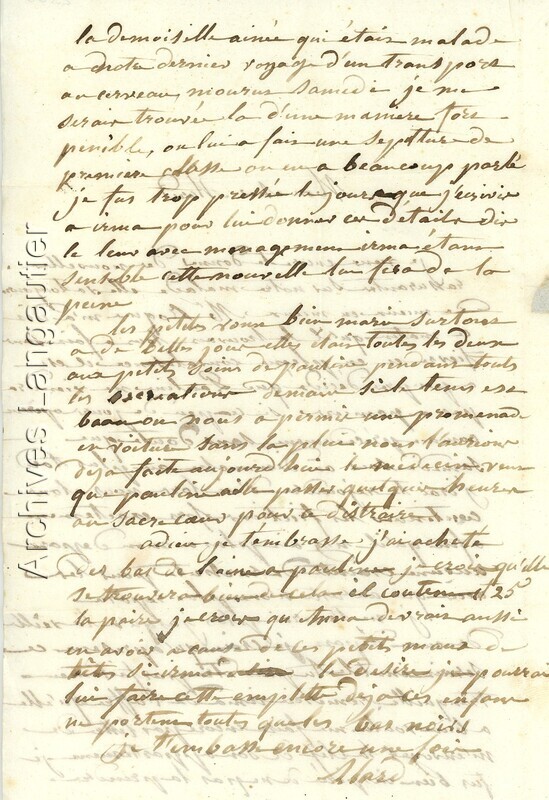 la demoiselle ainée qui étais malade
a notre dernier voyage d'un transport
au cerveau, mourus samedi je me
serais trouvée la d'une manière fort
penible, on lui a fait une sepulture de
premiere classe on en a beaucoup parlé
je fus trop pressée le jour que j'écrivis
a irma pour lui donner ces détails dis
le leur avec menagement irma étant
sensible cette nouvelle lui fera de la
peine
les petites vonx bien marie surtout
a de belles joues elles étais toutes les deux
aux petits soins de pauline pendant touts
les recreations demain si le tems est
beau on nous a permis une promenade
en voiture sans la pluie nous l'aurions
déjà faite aujourd'huie le medecin veux
que pauline aille passer quelques heures
au sacre cœur pour ce distraire
adieu je t'embrasse j'ai acheté
des bas de laine a pauline je crois qu'elle
se trouvera bien de cela il coutent 25
la paire je crois qu'Anna devrais aussi
en avoir a cause de ces petits maux de
têtes si irma le desire je pourrai
lui faire cette emplette déjà ces enfans
ne portent toutes que les bas noirs
je t'embasse encore une fois
Archives Langautier